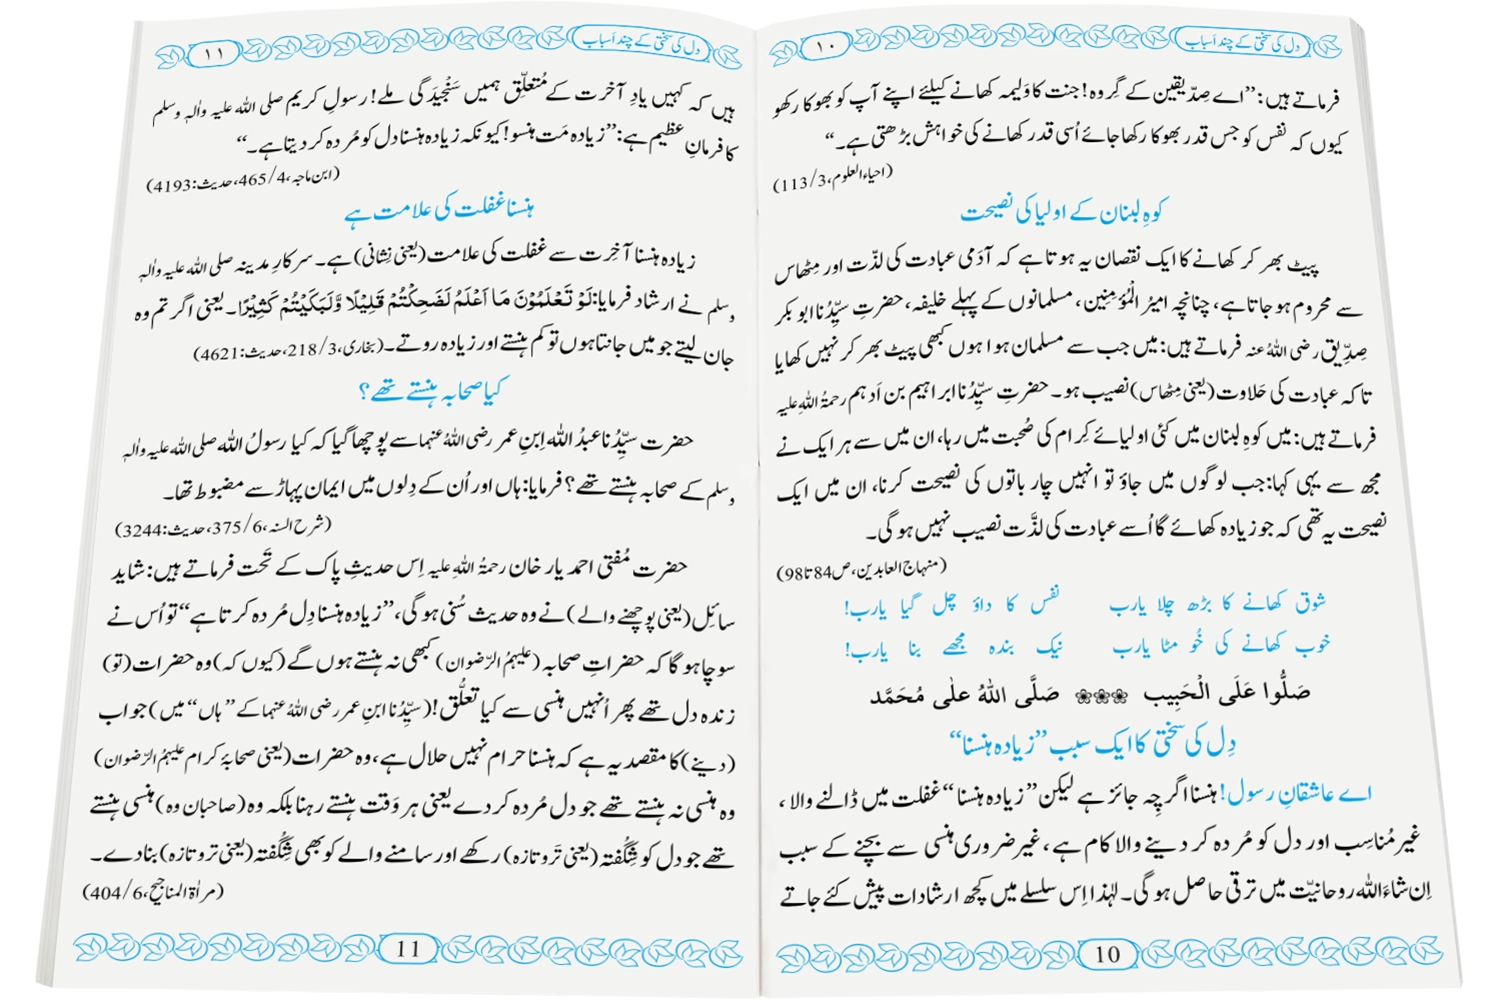 دل کی سختی کے چند اَسباب
۱۰
فرماتے ہیں: ”اے صِدّیقین کے گِروہ! جنت کا وَلیمہ کھانے کیلئے اپنے آپ کو بھوکا رکھو
کیوں کہ نفس کو جس قدر بھوکا رکھا جائے اُسی قدر کھانے کی خواہش بڑھتی ہے۔“
(احیاء العلوم،3/113)
کوہِ لبنان کے اولیا کی نصیحت
پیٹ بھر کر کھانے کا ایک نقصان یہ ہوتا ہے کہ آدَمی عبادت کی لذّت اور مِٹھاس
سے محروم ہو جاتا ہے، چنانچِہ امیرُ الْمُؤمِنِین، مسلمانوں کے پہلے خلیفہ، حضرتِ سیِّدُنا ابو بکر
صِدِّیق رضی اللہُ عنہ فرماتے ہیں: میں جب سے مسلمان ہوا ہوں کبھی پیٹ بھر کر نہیں کھایا
تاکہ عبادت کی حَلاوت (یعنی مِٹھاس) نصیب ہو۔ حضرتِ سیِّدُنا ابراہیم بن اَدہم رحمۃُ اللہِ علیہ
فرماتے ہیں: میں کوہِ لبنان میں کئی اولیائے کِرام کی صُحبت میں رہا، ان میں سے ہر ایک نے
مجھ سے یہی کہا: جب لوگوں میں جاؤ تو انہیں چار باتوں کی نصیحت کرنا، ان میں ایک
نصیحت یہ تھی کہ جو زیادہ کھائے گا اُسے عبادت کی لذَّت نصیب نہیں ہوگی۔
(منہاج العابدین،ص84تا98)
شوق کھانے کا بڑھ چلا یارب نفس کا داؤ چل گیا یارب!
خوب کھانے کی خُو مٹا یارب نیک بندہ مجھے بنا یارب!
صَلُّوا عَلَى الْحَبِيب ❀❀❀ صَلَّى اللهُ علٰى مُحَمَّد
دِل کی سختی کا ایک سبب ”زیادہ ہنسنا“
اے عاشقانِ رسول! ہنسنا اگرچِہ جائز ہے لیکن ”زیادہ ہنسنا“ غفلت میں ڈالنے والا،
غیر مُناسِب اور دل کو مُردہ کر دینے والا کام ہے، غیر ضروری ہنسی سے بچنے کے سبب
اِن شاءَ اللہ روحانیّت میں ترقی حاصل ہوگی۔ لہٰذا اِس سلسلے میں کچھ ارشادات پیش کئے جاتے
10
دل کی سختی کے چند اَسباب
۱۱
ہیں کہ کہیں یادِ آخرت کے مُتعلِّق ہمیں سَنْجیدَگی ملے! رسولِ کریم صلی اللہ علیہ واٰلہٖ وسلم
کا فرمانِ عظیم ہے: ”زیادہ مَت ہنسو! کیونکہ زیادہ ہنسنا دل کو مُردہ کر دیتا ہے۔“
(ابن ماجہ،4/465،حدیث:4193)
ہنسنا غفلت کی علامت ہے
زیادہ ہنسنا آخِرت سے غفلت کی علامت (یعنی نِشانی) ہے۔ سرکارِ مدینہ صلی اللہ علیہ واٰلہٖ
وسلم نے ارشاد فرمایا: لَوْ تَعْلَمُوْنَ مَا اَعْلَمُ لَضَحِكْتُمْ قَلِيْلًا وَّلَبَكَيْتُمْ كَثِيْرًا۔ یعنی اگر تم وہ
جان لیتے جو میں جانتا ہوں تو کم ہنستے اور زیادہ روتے۔ (بخاری،3/218،حدیث:4621)
کیا صحابہ ہنستے تھے؟
حضرت سیِّدُنا عبدُ اللہ اِبنِ عمر رضی اللہُ عنہما سے پوچھا گیا کہ کیا رسولُ اللہ صلی اللہ علیہ واٰلہٖ
وسلم کے صحابہ ہنستے تھے؟ فرمایا: ہاں اور اُن کے دِلوں میں ایمان پہاڑ سے مضبوط تھا۔
(شرح السنہ،6/375،حدیث:3244)
حضرت مُفتی احمد یار خان رحمۃُ اللہِ علیہ اِس حدیثِ پاک کے تَحت فرماتے ہیں: شاید
سائِل (یعنی پوچھنے والے) نے وہ حدیث سُنی ہوگی، ”زیادہ ہنسنا دِل مُردہ کرتا ہے“ تو اُس نے
سوچا ہو گا کہ حضراتِ صحابہ (علیہمُ الرّضوان) کبھی نہ ہنستے ہوں گے (کیوں کہ) وہ حضرات (تو)
زندہ دل تھے پھر اُنہیں ہنسی سے کیا تعلُّق! (سیِّدُنا ابنِ عمر رضی اللہُ عنہما کے ”ہاں“ میں) جواب
(دینے) کا مقصد یہ ہے کہ ہنسنا حرام نہیں حلال ہے، وہ حضرات (یعنی صحابۂ کرام علیہمُ الرّضوان)
وہ ہنسی نہ ہنستے تھے جو دل مُردہ کر دے یعنی ہر وَقت ہنستے رہنا بلکہ وہ (صاحبان وہ) ہنسی ہنستے
تھے جو دل کو شِگُفتہ (یعنی تَروتازہ) رکھے اور سامنے والے کو بھی شِگُفتہ (یعنی تروتازہ) بنا دے۔
(مراٰۃ المناجیح،6/404)
11